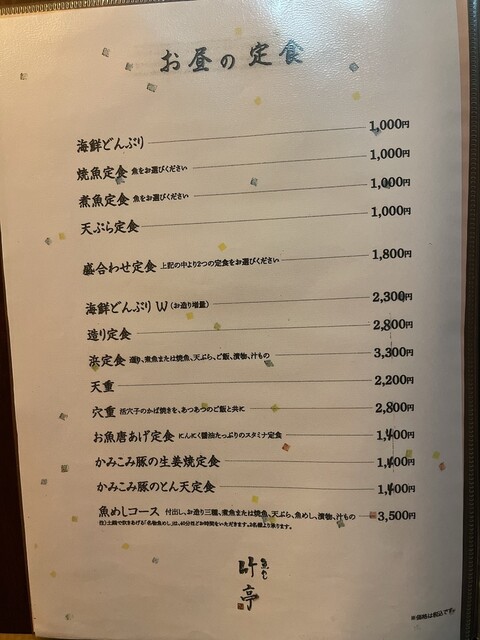 お昼の定食
海鮮どんぶり 1,000円
焼魚定食 魚をお選びください 1,000円
煮魚定食 魚をお選びください 1,000円
天ぷら定食 1,000円
盛合わせ定食 上記の中より2つの定食をお選びください 1,800円
海鮮どんぶりW(お造り増量) 2,300円
造り定食 2,800円
浜定食 造り、煮魚または焼魚、天ぷら、ご飯、漬物、汁もの 3,300円
天重 2,200円
穴重 活穴子のかば焼きを、あつあつのご飯と共に 2,800円
お魚唐あげ定食 にんにく醤油たっぷりのスタミナ定食 1,400円
かみこみ豚の生姜焼定食 1,400円
かみこみ豚のとん天定食 1,400円
魚めしコース 付出し、お造り三種、煮魚または焼魚、天ぷら、魚めし、漬物、汁もの 3,500円
注)土鍋で炊きあげる「名物魚めし」は、40分ほどお時間をいただきます。2名様より承ります。
魚めし
叶亭
※価格は税込です。